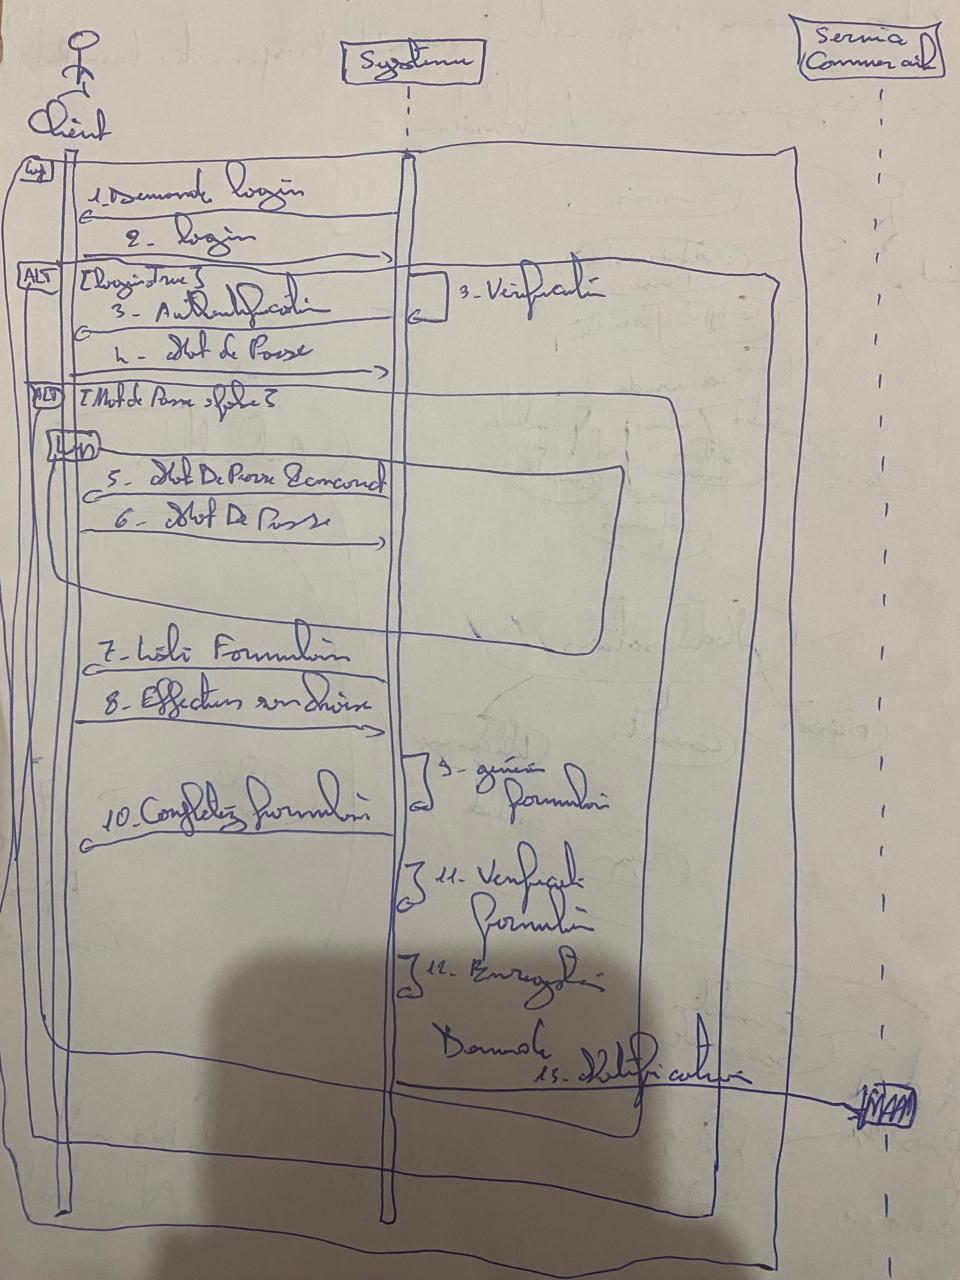 Client
System
Service
Commercial
Loop
1. Demande login
2 - login
ALT
[login True]
3 - Verification
3 - Authentification
4 - Mot de Passe
ALT
[Mot de Passe false]
5 - Mot De Passe
6 - Mot De Passe
7 - Liste Formulaire
8 - Effectuer son choix
9 - générer
formulaire
10. Complétez formulaire
11 - Verification
formulaire
12 - Enregistrer
Demande
13 - Notification